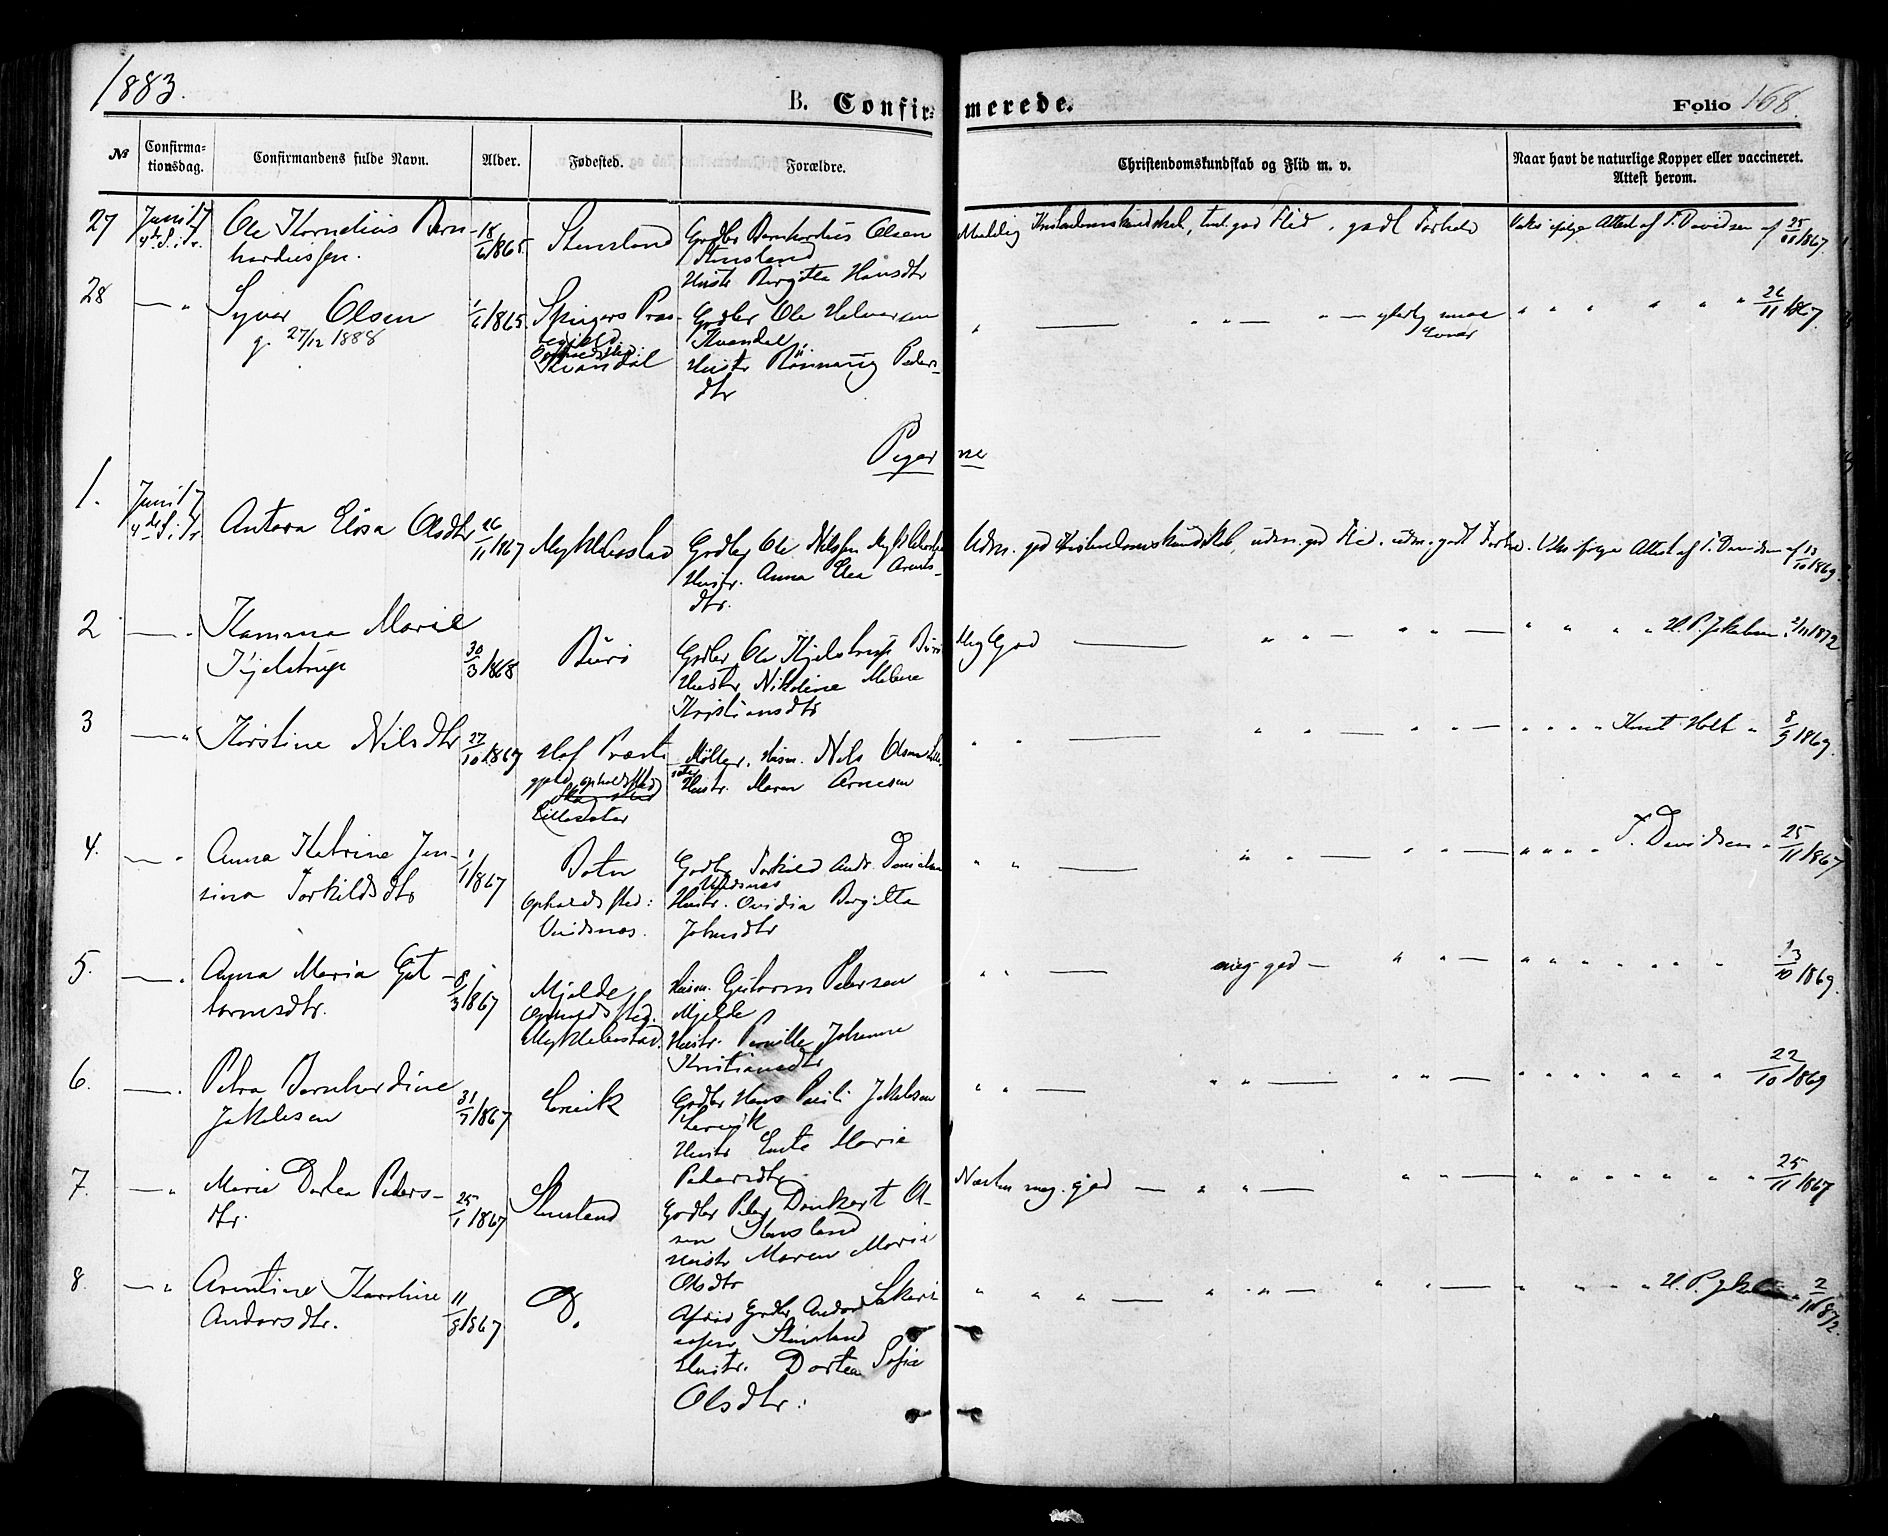 1883.
B. Confirmerede.
Folio 168.
No
Confirmationsdag.
Confirmandens fulde Navn.
Alder.
Fødested.
Forældre.
Christendomskundskab og Flid m. v.
Naar havt de naturlige Kopper eller vaccineret.
Attest herom.
27
Juni 17
4de S. i Tr.
Ole Kornelius Bern-
hardussen.
18/6 1865.
Stensland
Grdbr Bernhardus Olsen
Stensland
Hustr Birgitta Hansdtr
Maadelig Kristendomskundskab, tem. god Flid, godt Forhold
Vakc. ifølge Attest af T. Davidsen af 25/11 1867.
28
— "
Syver Olsen
g. 27/12 1888
1/6 1865.
Opholdssted
Kvandal
Grdbr Ole Halvorsen
Kvandal
Hustr Rönnaug Peders-
dtr
Evner
26/11 1867.
Pigerne
1.
Juni 17
4de S. i Tr.
Antora Elisa Olsdtr
26/11 1867
Myklebostad
Grdbr Ole Nilssen Myklebostad
Hustr. Anna Elea Arents-
dtr.
Udm. god Kristendomskundskab, udm. god Flid, udm. godt Forhold.
Vakc. ifølge Attest af T. Davidsen af 13/10 1869.
2
— "
Hanna Marie
Kjelstrup
30/3 1868
Grdbr Ole Kjelstrup
Hustr Nikoline Malene
Kristiansdtr
Meg God
H. P. Jakobsen 2/11 1872
3
— "
Kirstine Nilsdtr
27/10 1867
Hof Præste-
gjeld, opholdssted
Lillesæter
Møller, Husm. Nils Olsen
Hustr. Maren Arnesen
Knut Holt " 8/9 1869.
4.
— "
Anna Katrine Jen-
sina Torkildsdtr
1/1 1867
Botn
opholdssted:
Vindsnes.
Grdbr Torkild Andr. Danielsen
Hustr. Ovidia Birgitta
Johnsdtr
T. Davidsen " 25/11 1867
5.
— "
Anna Maria Gut-
tormsdtr.
8/3 1867
Mjelde
Opholdssted.
Myklebostad.
Husm. Guttorm Petersen
Mjelde
Hustr. Pernille Johanna
Kristiansdtr
meg god —
13/10 1869.
6.
— "
Petra Bernhardine
Jakobsen
31/7 1867
Lervik
Grdbr Hans Pauli Jakobsen
Lervik
Hustr Marie
Pedersdtr
22/10 1869
7.
— "
Marie Dortea Peders-
dtr.
25/1 1867
Stensland
Grdbr Peder Dankert Ol-
sen Stensland
Hustr Maren Marie
Olsdtr
Næsten meg. god —
25/11 1867
8.
— "
Arentine Karoline
Andersdtr.
11/8 1867
D.
Afdød Grdbr Anders Sakari-
assen Stensland
Hustr. Dortea Sofie
Olsdtr.
H. P. Jakobsen 2/11 1872.